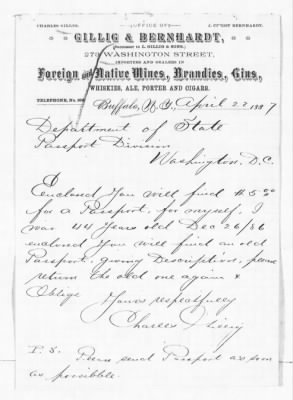 CHARLES GILLIG. OFFICE OF J. CURRY BERNHARDT.
GILLIG & BERNHARDT,
(Successors to L. GILLIG & SONS,)
276 WASHINGTON STREET,
IMPORTERS AND DEALERS IN
Foreign and Native Wines, Brandies, Gins,
WHISKIES, ALE, PORTER AND CIGARS.
TELEPHONE, No.
Buffalo, N.Y. April 22 1887
Department of State
Passport Division
Washington, D.C.
Enclosed You will find $5.00
for a Passport, for myself, I
was 44 Years old Dec 26/86
enclosed You will find an old
Passport, giving Description, please
return the old one again &
Oblige
Yours respectfully
Charles Gillig
P.S. Please send Passport as soon
as possibble.